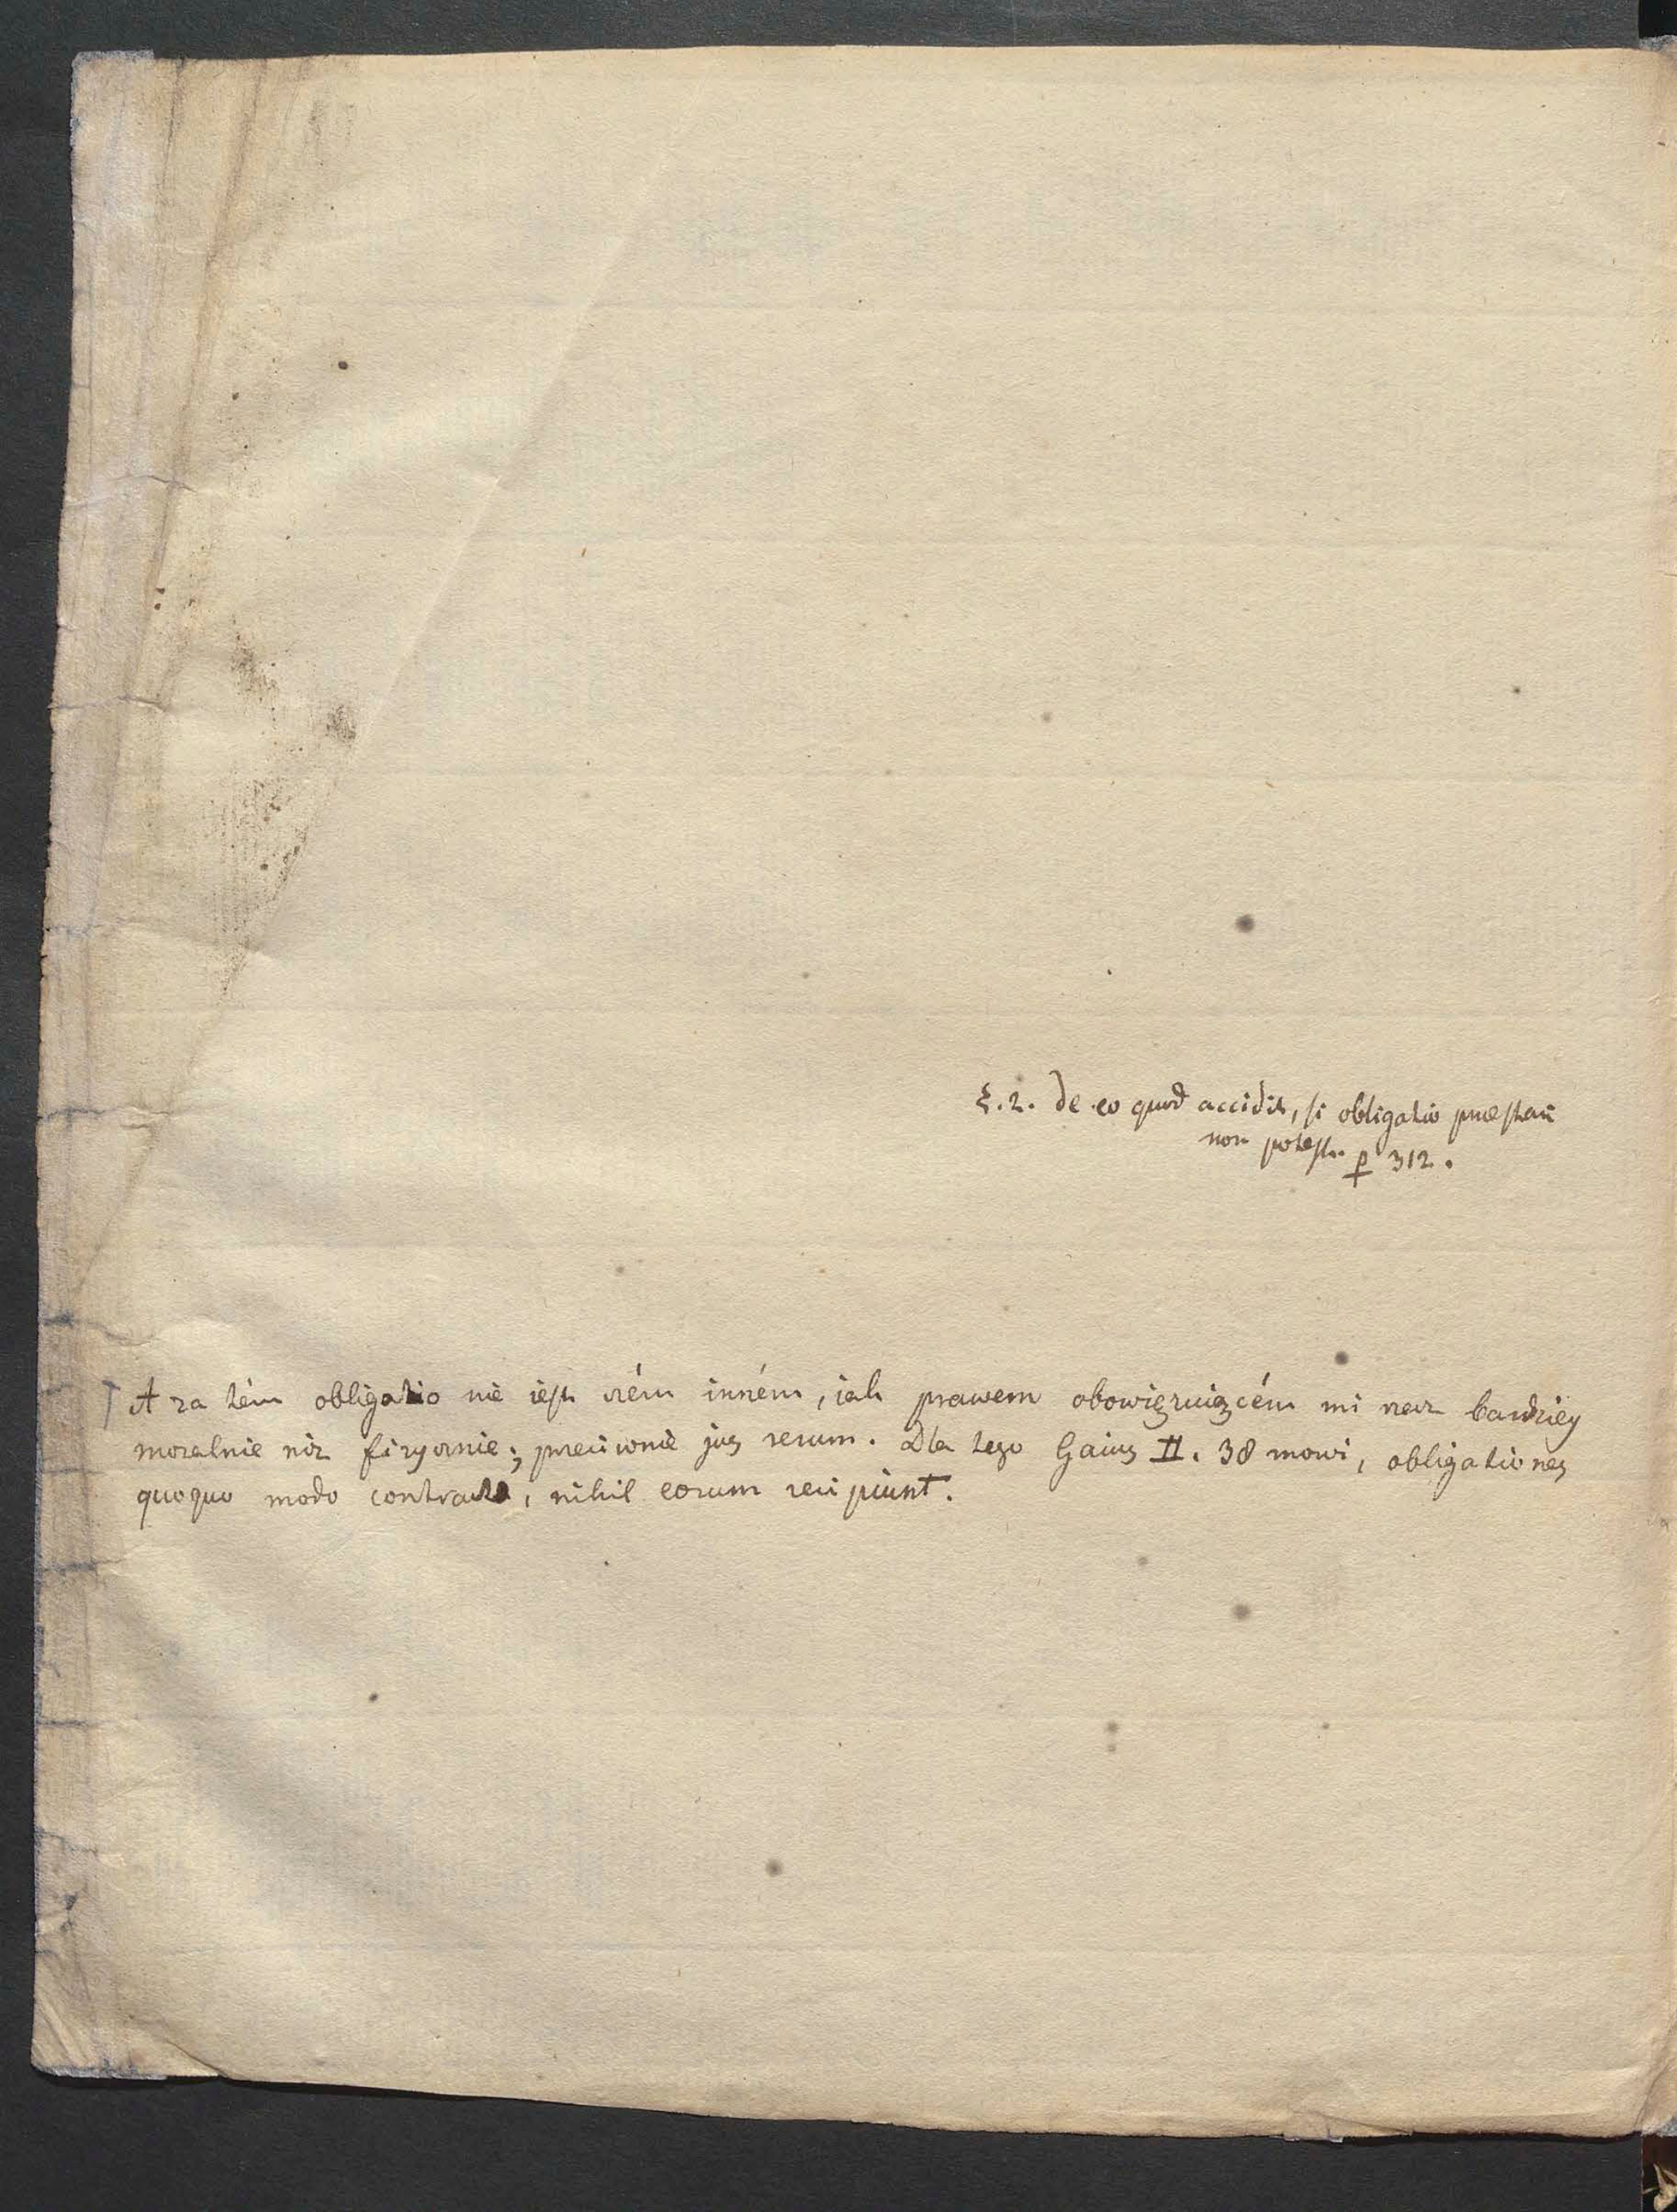 §. 2. de eo quod accidit, si obligatio præstari
non potest. p 312.
A za tém obligatio nie iest czém inném, iak prawem obowięzuiącém mi raz bardziey
moralnie niz fizycznie; przeciwnie jus rerum. Dla tego Gaius II. 38 mowi, obligationes
quoquo modo contractæ, nihil eorum recipiunt.